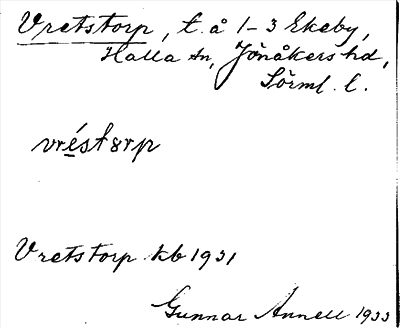 Vretstorp, t. å 1-3 Ekeby,
Halla sn, Jönåkers hd,
Sörml. l.
vréstɷrp
Vretstorp kb 1931
Gunnar Annell 1933